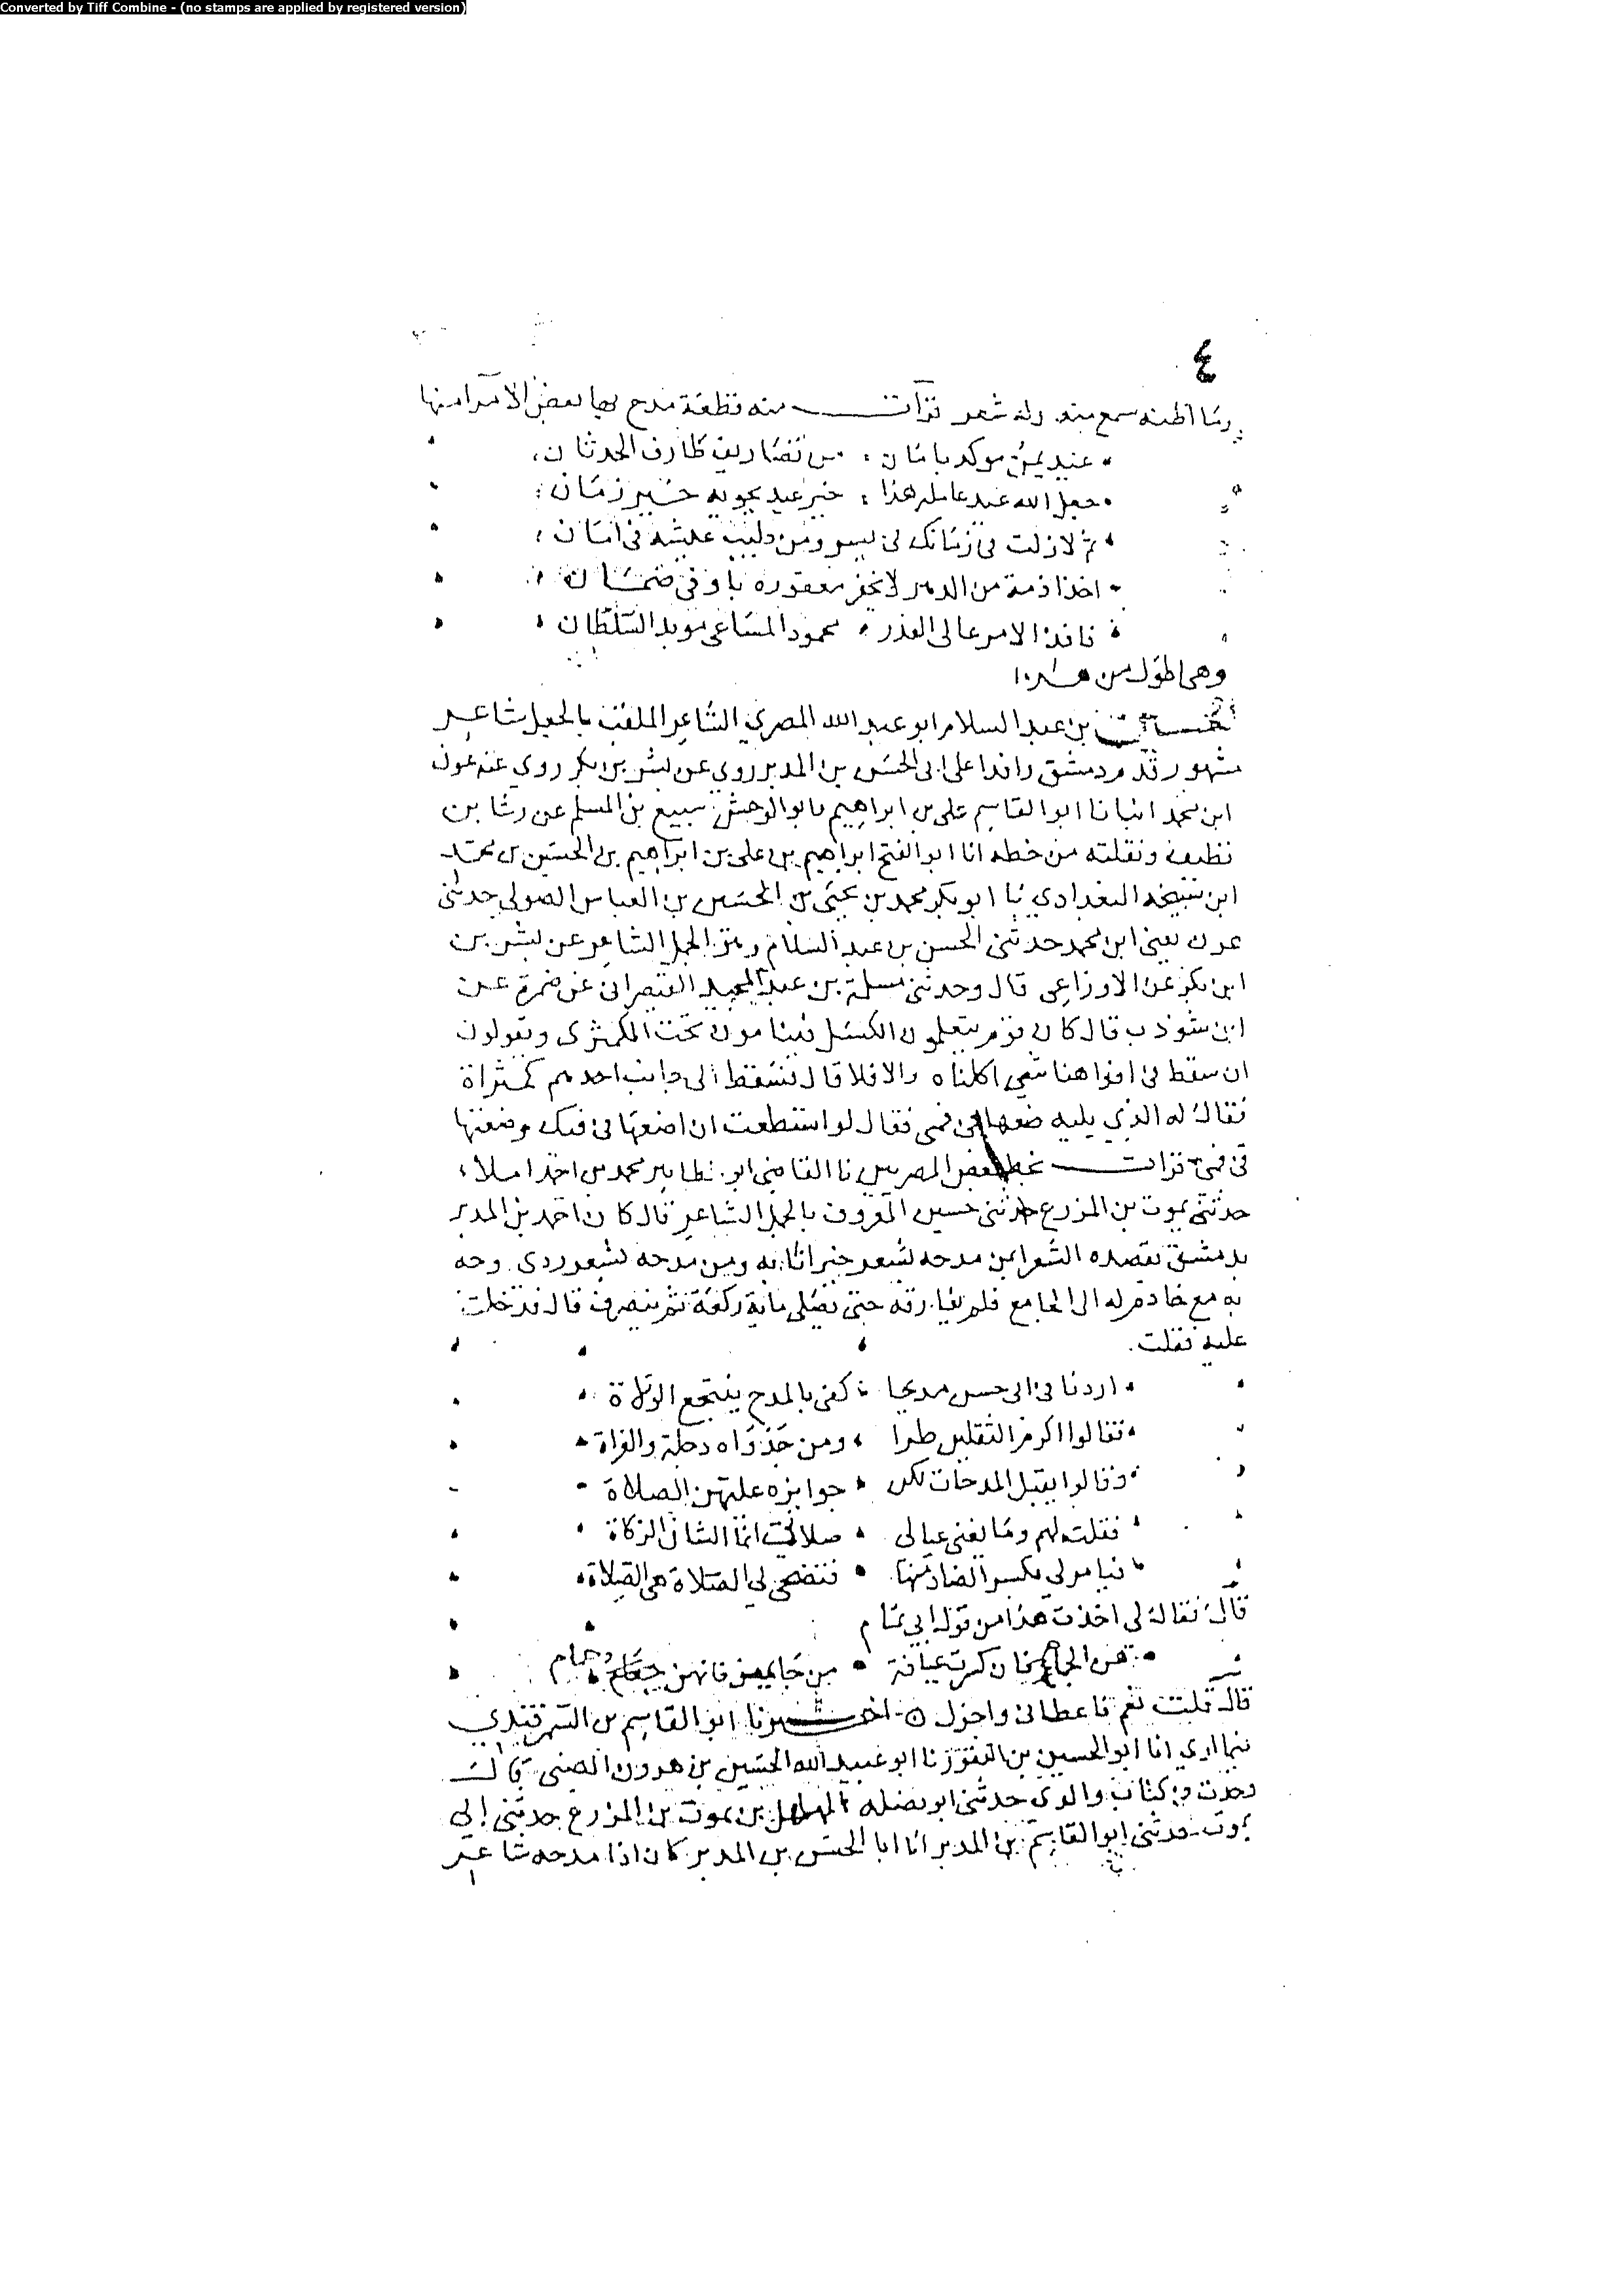 Converted by Tiff Combine - (no stamps are applied by registered version)
٤
وما اظنه سمع منه وله شعر قرات منه قطعة مدح بها بعض الامرا منها
عيد يمن موكد بامان من تصاريف طارق الحدثان
جعل الله عيد عامك هذا خير عيد يحويه خير زمان
ثم لا زلت في زمانك في يسر ومن طيب عيشه في امان
اخذا ذمة من الدهر لا تخفر معقوده باوفى ضمان
نافذ الامر عالي القدر محمود المساعي مويد السلطان
وهي اطول من هذا
الحسين بن عبد السلام ابو عبد الله المصري الشاعر الملقب بالجمل شاعر
مشهور قدم دمشق وافدا على ابي الحسن بن المدبر روي عن بشر بن بكر روي عنه عون
ابن محمد انبانا ابو القاسم علي بن ابراهيم وابو الوحش سبيع بن المسلم عن رشا بن
نظيف ونقلته من خطه انا ابو الفتح ابراهيم بن علي بن ابراهيم بن الحسين بن محمد
ابن سيبخت البغدادي نا ابو بكر محمد بن يحيى بن العباس الصولي حدثني
عون يعني ابن محمد حدثني الحسن بن عبد السلام وهو الجمل الشاعر عن بشر بن
ابن بكر عن الاوزاعي قال وحدثني مسلمة بن عبد الحميد القيصراني عن ضمرة عن
ابن شوذب قال كان قوم يتعلمون الكسل فيناموں تحت الكمثرى ويقولون
ان سقط في افواهنا شي اكلناه والا فلا قال فسقط الى جانب احدهم كمثراة
فقال له الذي يليه ضعها في فمي فقال لو استطعت ان اضعها في فيك وضعتها
في فمي قرات بخط بعض المصريين نا القاضي ابو طاهر محمد بن احمد املاء
حدثني يموت بن المزرع حدثني حسين المعروف بالجمل الشاعر قال كان احمد بن المدبر
بدمشق يقصده الشعرا من مدحه بشعر خير اثابه ومن مدحه بشعر ردي وجه
به مع خادم له الى الجامع فلم يفارقه حتى يصلي ماية ركعة ثم ينصرف قال فدخلت
عليه فقلت
اردنا في ابي حسن مديحا كفى بالمدح ينتجع الولاة
فقالوا اكرم الثقلين طرا ومن جدواه دجلة والفراة
وقالوا يقبل المدحات لكن جوايزه عليهن الصلاة
فقلت لهم وما يغني عيالي صلاتي انما الشان الزكاة
فيا مر لي بكسر الصاد منها فتضحي لي الصلاة هي الصلاة
قال فقال لي اخذت هذا من قول ابي تمام
هن الحمام فان كسرت عيافة من حايهن فانهن حمام
قال قلت نعم فاعطاني واجزل اخبرنا ابو القاسم بن السمرقندي
فيما اري انا ابو الحسين بن النقور نا ابو عبيد الله الحسين بن هرون الضبي قال
وجدت في كتاب والدي حدثني ابو نضله المهلهل بن يموت بن المزرع حدثني ابي
يموت حدثني ابو القاسم بن المدبر ان ابا الحسن بن المدبر كان اذا مدحه شاعر